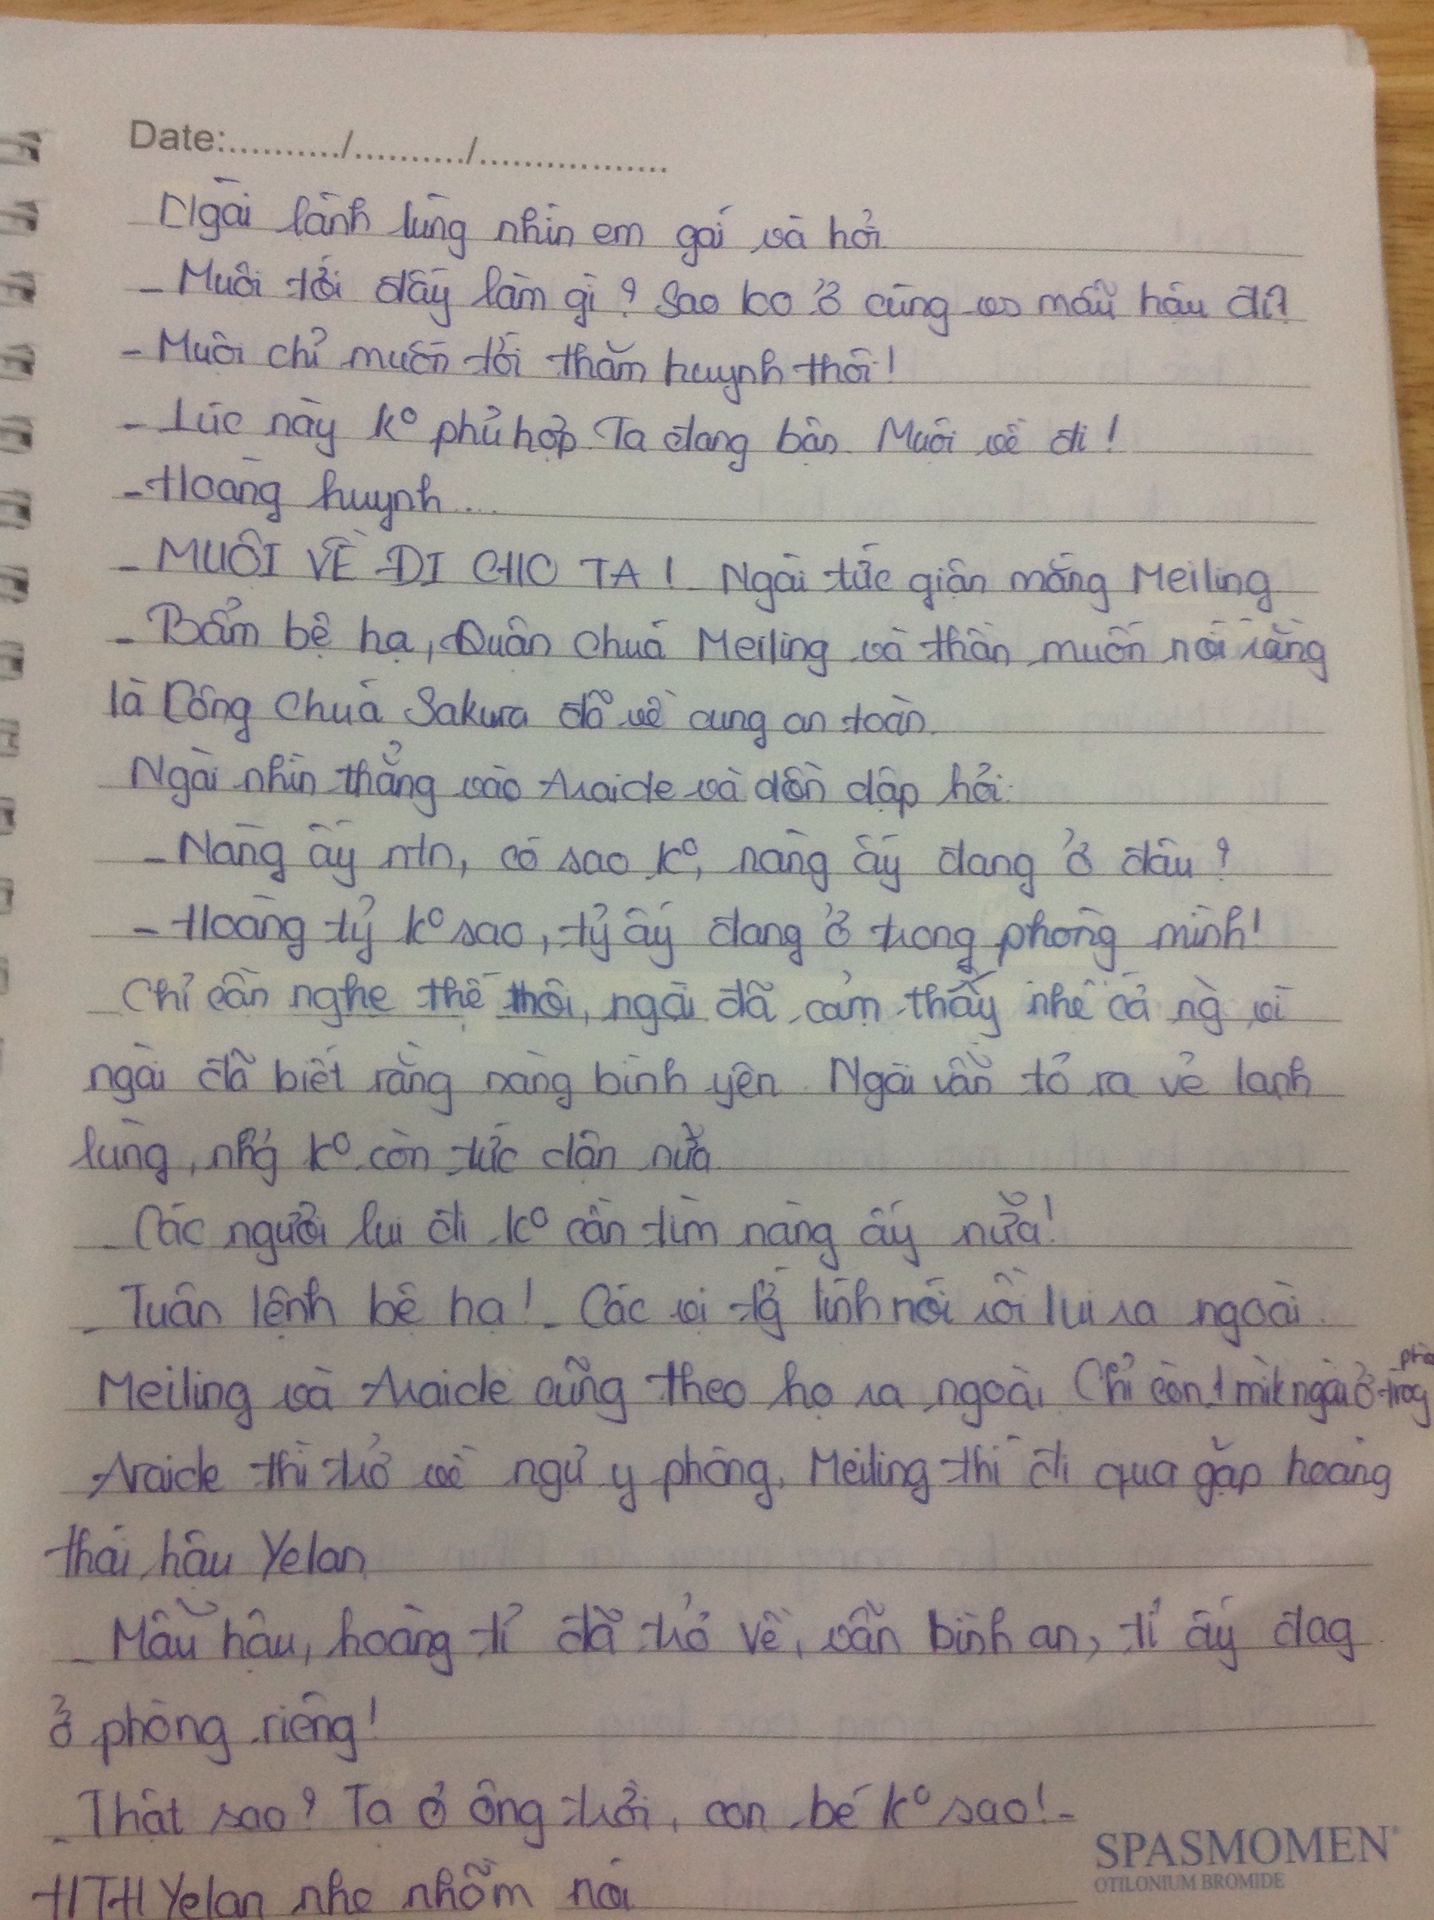 Date:........../........../.................
Ngài lành lùng nhìn em gái và hỏi
- Muôi tới đây làm gì? Sao ko ở cùng vs mẫu hâu đi?
- Muôi chỉ muốn tới thăm huynh thôi!
- Lúc này k° phù hợp. Ta đang bận. Muôi về đi!
- Hoàng huynh...
- MUÔI VỀ ĐI CHO TA! Ngài tức giận mắng Meiling
- Bẩm bệ hạ, Quân chuá Meiling và thần muốn nói rằng
là Công Chuá Sakura đã về cung an toàn.
Ngài nhìn thẳng vào Araide và dồn dập hỏi:
- Nàng ấy ntn, có sao k°, nàng ấy đang ở đâu?
- Hoàng tỷ k° sao, tỷ ấy đang ở trong phòng mình!
Chỉ cần nghe thế thôi, ngài đã cảm thấy nhẹ cả ng vì
ngài đã biết rằng nàng bình yên. Ngài vẫn tỏ ra vẻ lanh
lùng, nhg k° còn tức dân nữa
Các người lui đi k° cần tìm nàng ấy nữa!
- Tuân lệnh bệ hạ! - Các vị lính nói rồi lui ra ngoài.
Meiling và Araide cũng theo họ ra ngoài. Chỉ còn 1 mik ngài ở trog
Araide thì trở về ngự y phòng, Meiling thì đi qua gặp hoàng
thái hâu Yelan
- Mẫu hâu, hoàng tỉ đã trở về, vẫn bình an, tỉ ấy đag
ở phòng riêng!
- Thật sao? Ta ơ ông trời, con bé k° sao! -
HTH Yelan nhẹ nhõm nói
SPASMOMEN®
OTILONIUM BROMIDE